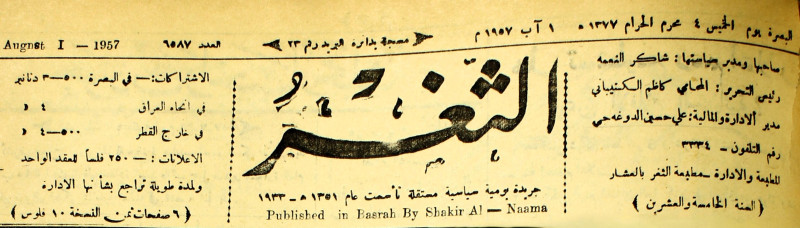 البصرة يوم الخميس ٤ محرم الحرام ١٣٧٧ هـ ١ آب ١٩٥٧ م
مسجلة بدائرة البريد رقم ٢٣
العدد ٦٥٨٧
August 1 — 1957
صاحبها ومدير سياستها : شاكر النعمه
رئيس التحرير : المحامي كاظم الكشتيباني
مدير الادارة والمالية : علي حسين الدوغه جي
رقم التلفون - ٣٣٣٤
المطبعة والادارة - مطبعة الثغر بالعشار
( السنة الخامسة والعشرين )
الثغر
جريدة يومية سياسية مستقلة تأسست عام ١٣٥١ هـ - ١٩٣٣
Published in Basrah By Shakir Al — Naama
الاشتراكات :— في البصرة ٥٠٠—٣ دنانير
في انحاء العراق ٤ »
في خارج القطر ٥٠٠—٤ »
الاعلانات : — ٢٥٠ فلساً للعقد الواحد
ولمدة طويلة تراجع بشأنها الادارة
( ٦ صفحات ثمن النسخة ١٠ فلوس )